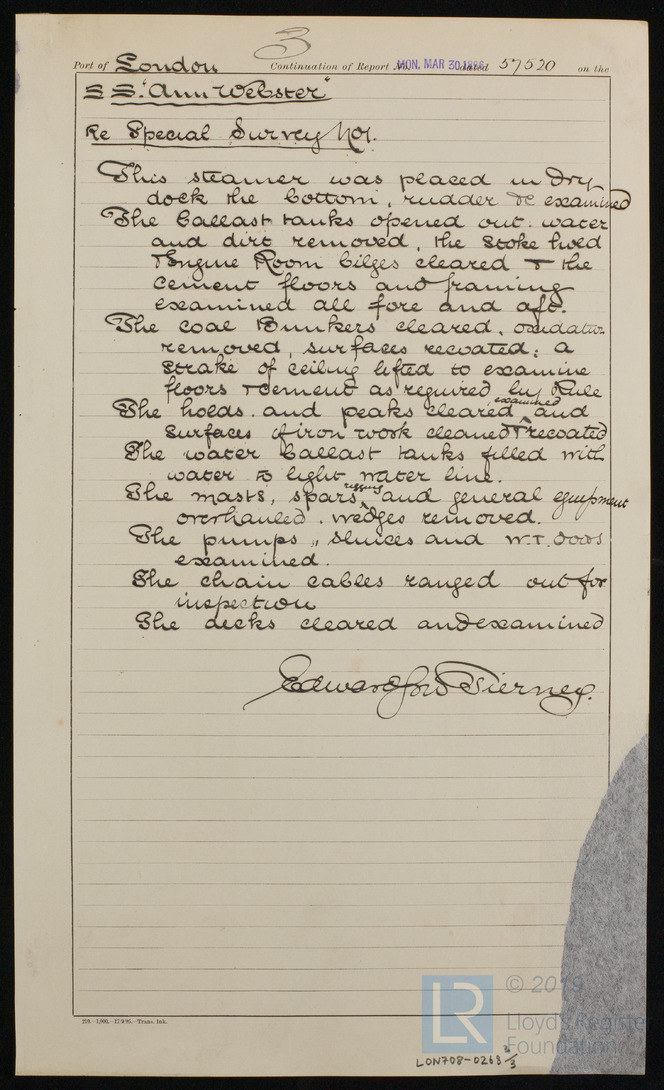 3
Port of London Continuation of Report No. MON. MAR 30. dated 57520 on the
SS. "Ann Webster"
Re Special Survey No 1.
This steamer was placed in Dry
dock the bottom, rudder &c examined
The ballast tanks opened out. water
and dirt removed, the stoke hold
& Engine Room bilges cleared & the
cement floors and framing
examined all fore and aft.
The coal Bunkers cleared, oxidation
removed, surfaces recoated; a
strake of ceiling lifted to examine
floors & cement as required by Rule
The holds. and peaks cleared examined and
surfaces of iron work cleaned & recoated
The water ballast tanks filled with
water to light water line.
The masts, spars, rigging and general equipment
overhauled. wedges removed.
The pumps, sluices and W.T. doors
examined.
The chain cables ranged out for
inspection
The decks cleared and examined
Edward Tierney.
© 2019
LR Lloyd's Register
Foundation
LON708-0268 3/3